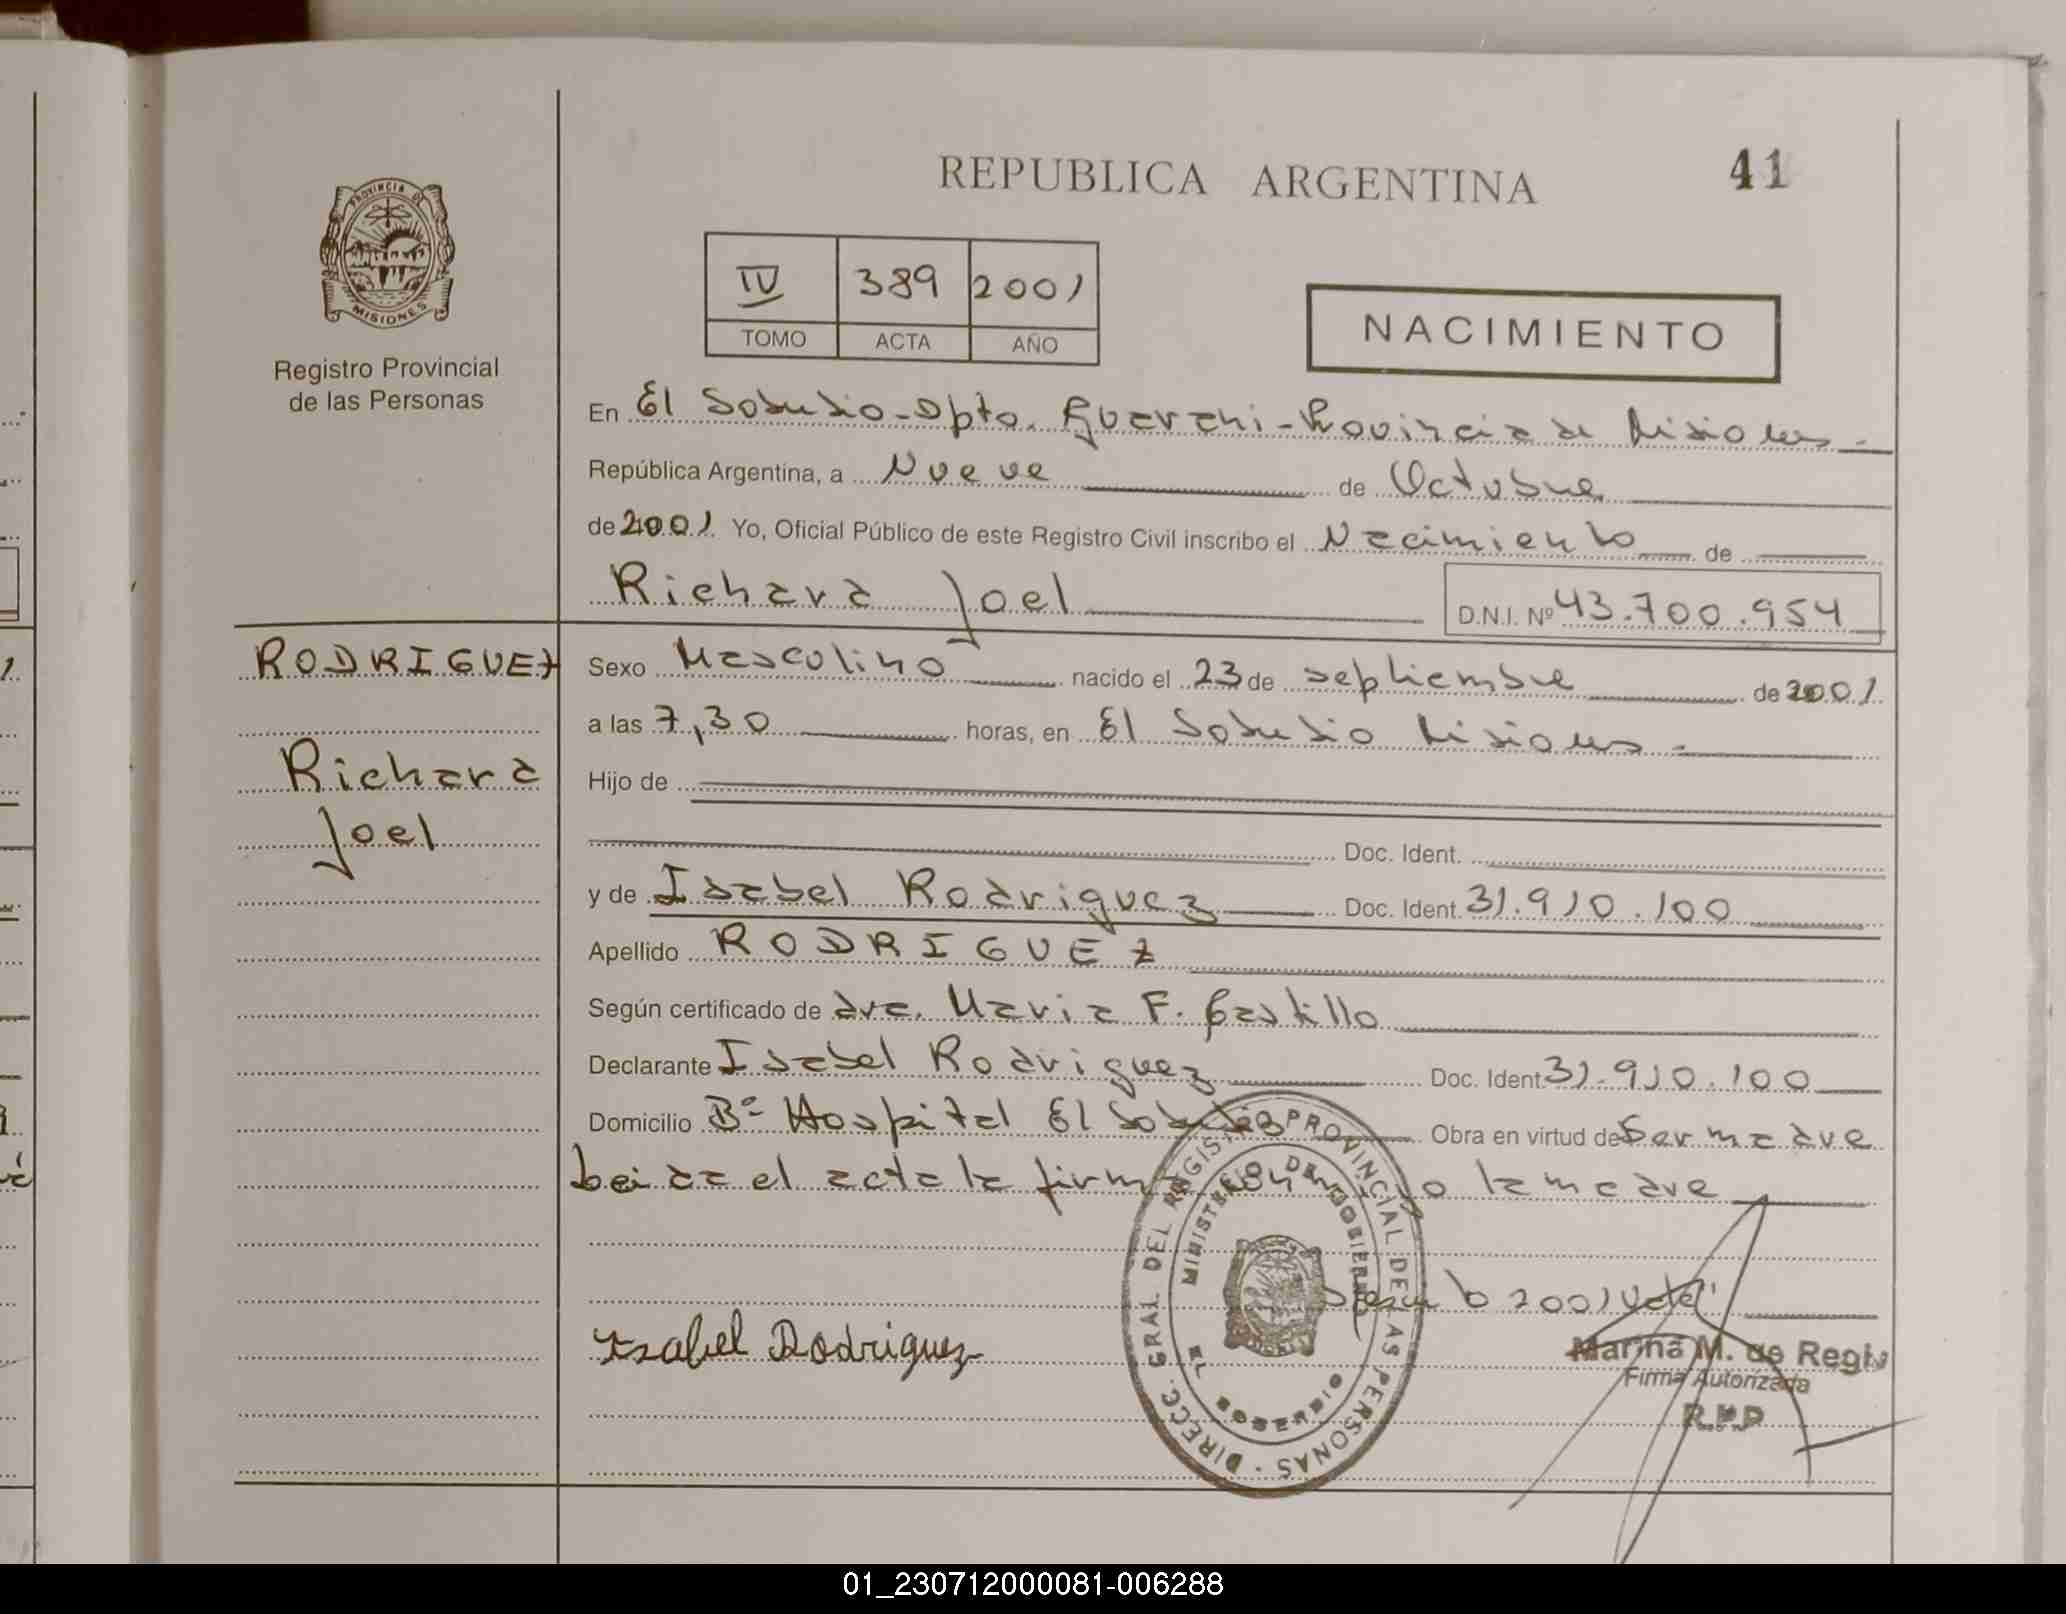 REPUBLICA ARGENTINA
41
PROVINCIA DE
MISIONES
Registro Provincial
de las Personas
IV 389 2001
TOMO ACTA AÑO
NACIMIENTO
En El Soberbio-Dpto. Guarani-Provincia de Misiones-
República Argentina, a Nueve de Octubre
de 2001 Yo, Oficial Público de este Registro Civil inscribo el Nacimiento de
Richard Joel
D.N.I. Nº 43.700.954
RODRIGUEZ
Richard
Joel
Sexo Masculino nacido el 23 de septiembre de 2001
a las 7,30 horas, en El Soberbio Misiones-
Hijo de
Doc. Ident.
y de Isabel Rodriguez Doc. Ident. 31.910.100
Apellido RODRIGUEZ
Según certificado de dra. Maria F. Castillo
Declarante Isabel Rodriguez Doc. Ident 31.910.100
Domicilio Bº Hospital El Soberbio Obra en virtud de Ser madre
Leida el acta la firma la madre
2001 Vale
Isabel Rodriguez
DIRECC. GRAL DEL REGISTRO PROVINCIAL DE LAS PERSONAS
MINISTERIO DE GOBIERNO
EL SOBERBIO
Marina M. de
Firma Autorizada
01_230712000081-006288